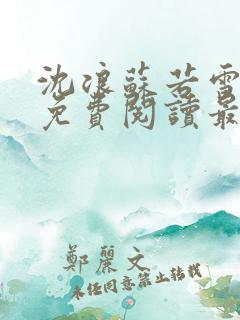 沈浪蘇若雪
免費閱讀最
鄭麗文
未经同意禁止转载